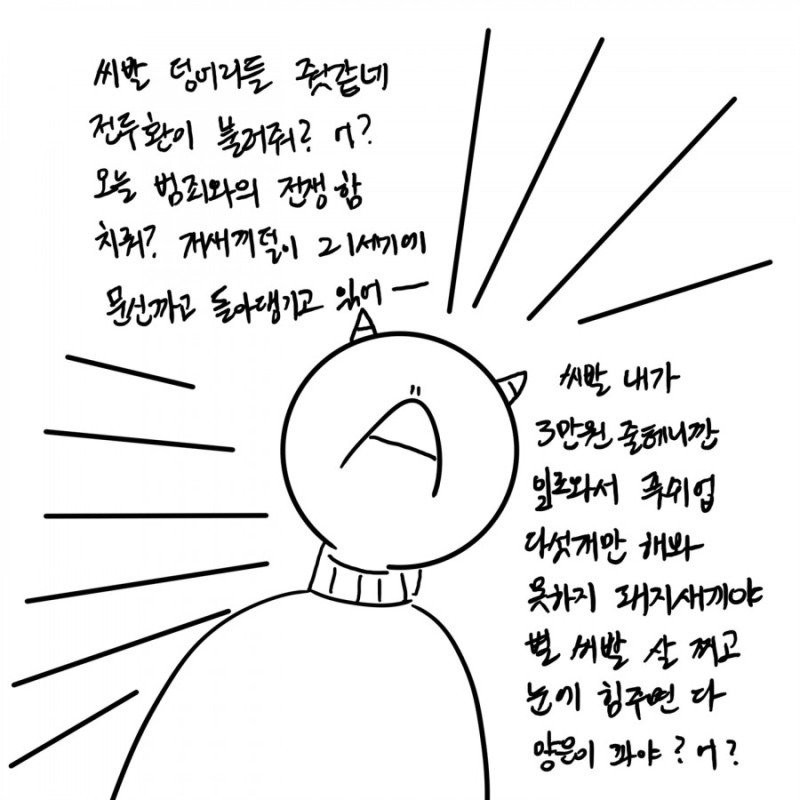 씨발 덩어리들 줫같네
전두환이 불러줘? 어?
오늘 범죄와의 전쟁 함
치뤄? 저새끼덜이 21세기에
문신까고 돌아댕기고 있어 ㅡ
A
씨발 내가
3만원 줄테니깐
일로와서 푸쉬업
다섯개만 해봐
못하지 돼지새끼야
별 씨발 살 찌고
눈에 힘주면 다
양은이 파야? 어?